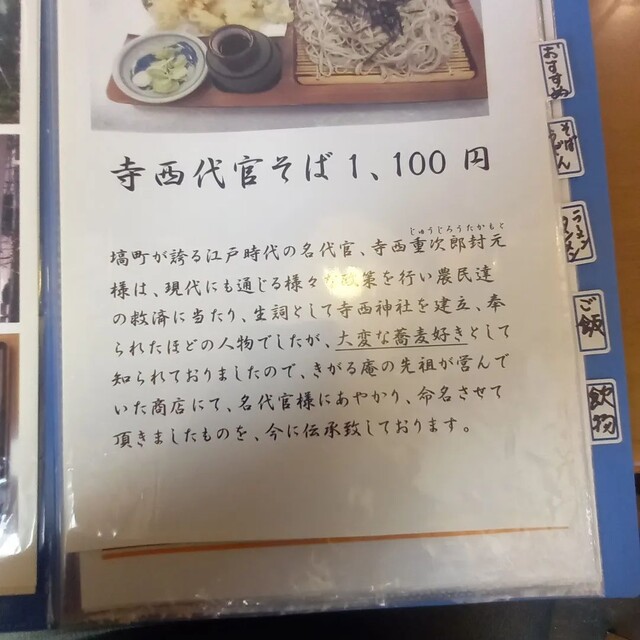 寺西代官そば1、100円
じゅうじろうたかもと
塙町が誇る江戸時代の名代官、寺西重次郎封元
様は、現代にも通じる様々な政策を行い農民達
の救済に当たり、生詞として寺西神社を建立、奉
られたほどの人物でしたが、大変な蕎麦好きとして
知られておりましたので、きがる庵の先祖が営んで
いた商店にて、名代官様にあやかり、命名させて
頂きましたものを、今に伝承致しております。
おすすめ
そば
うどん
ラーメン
ご飯
飲物